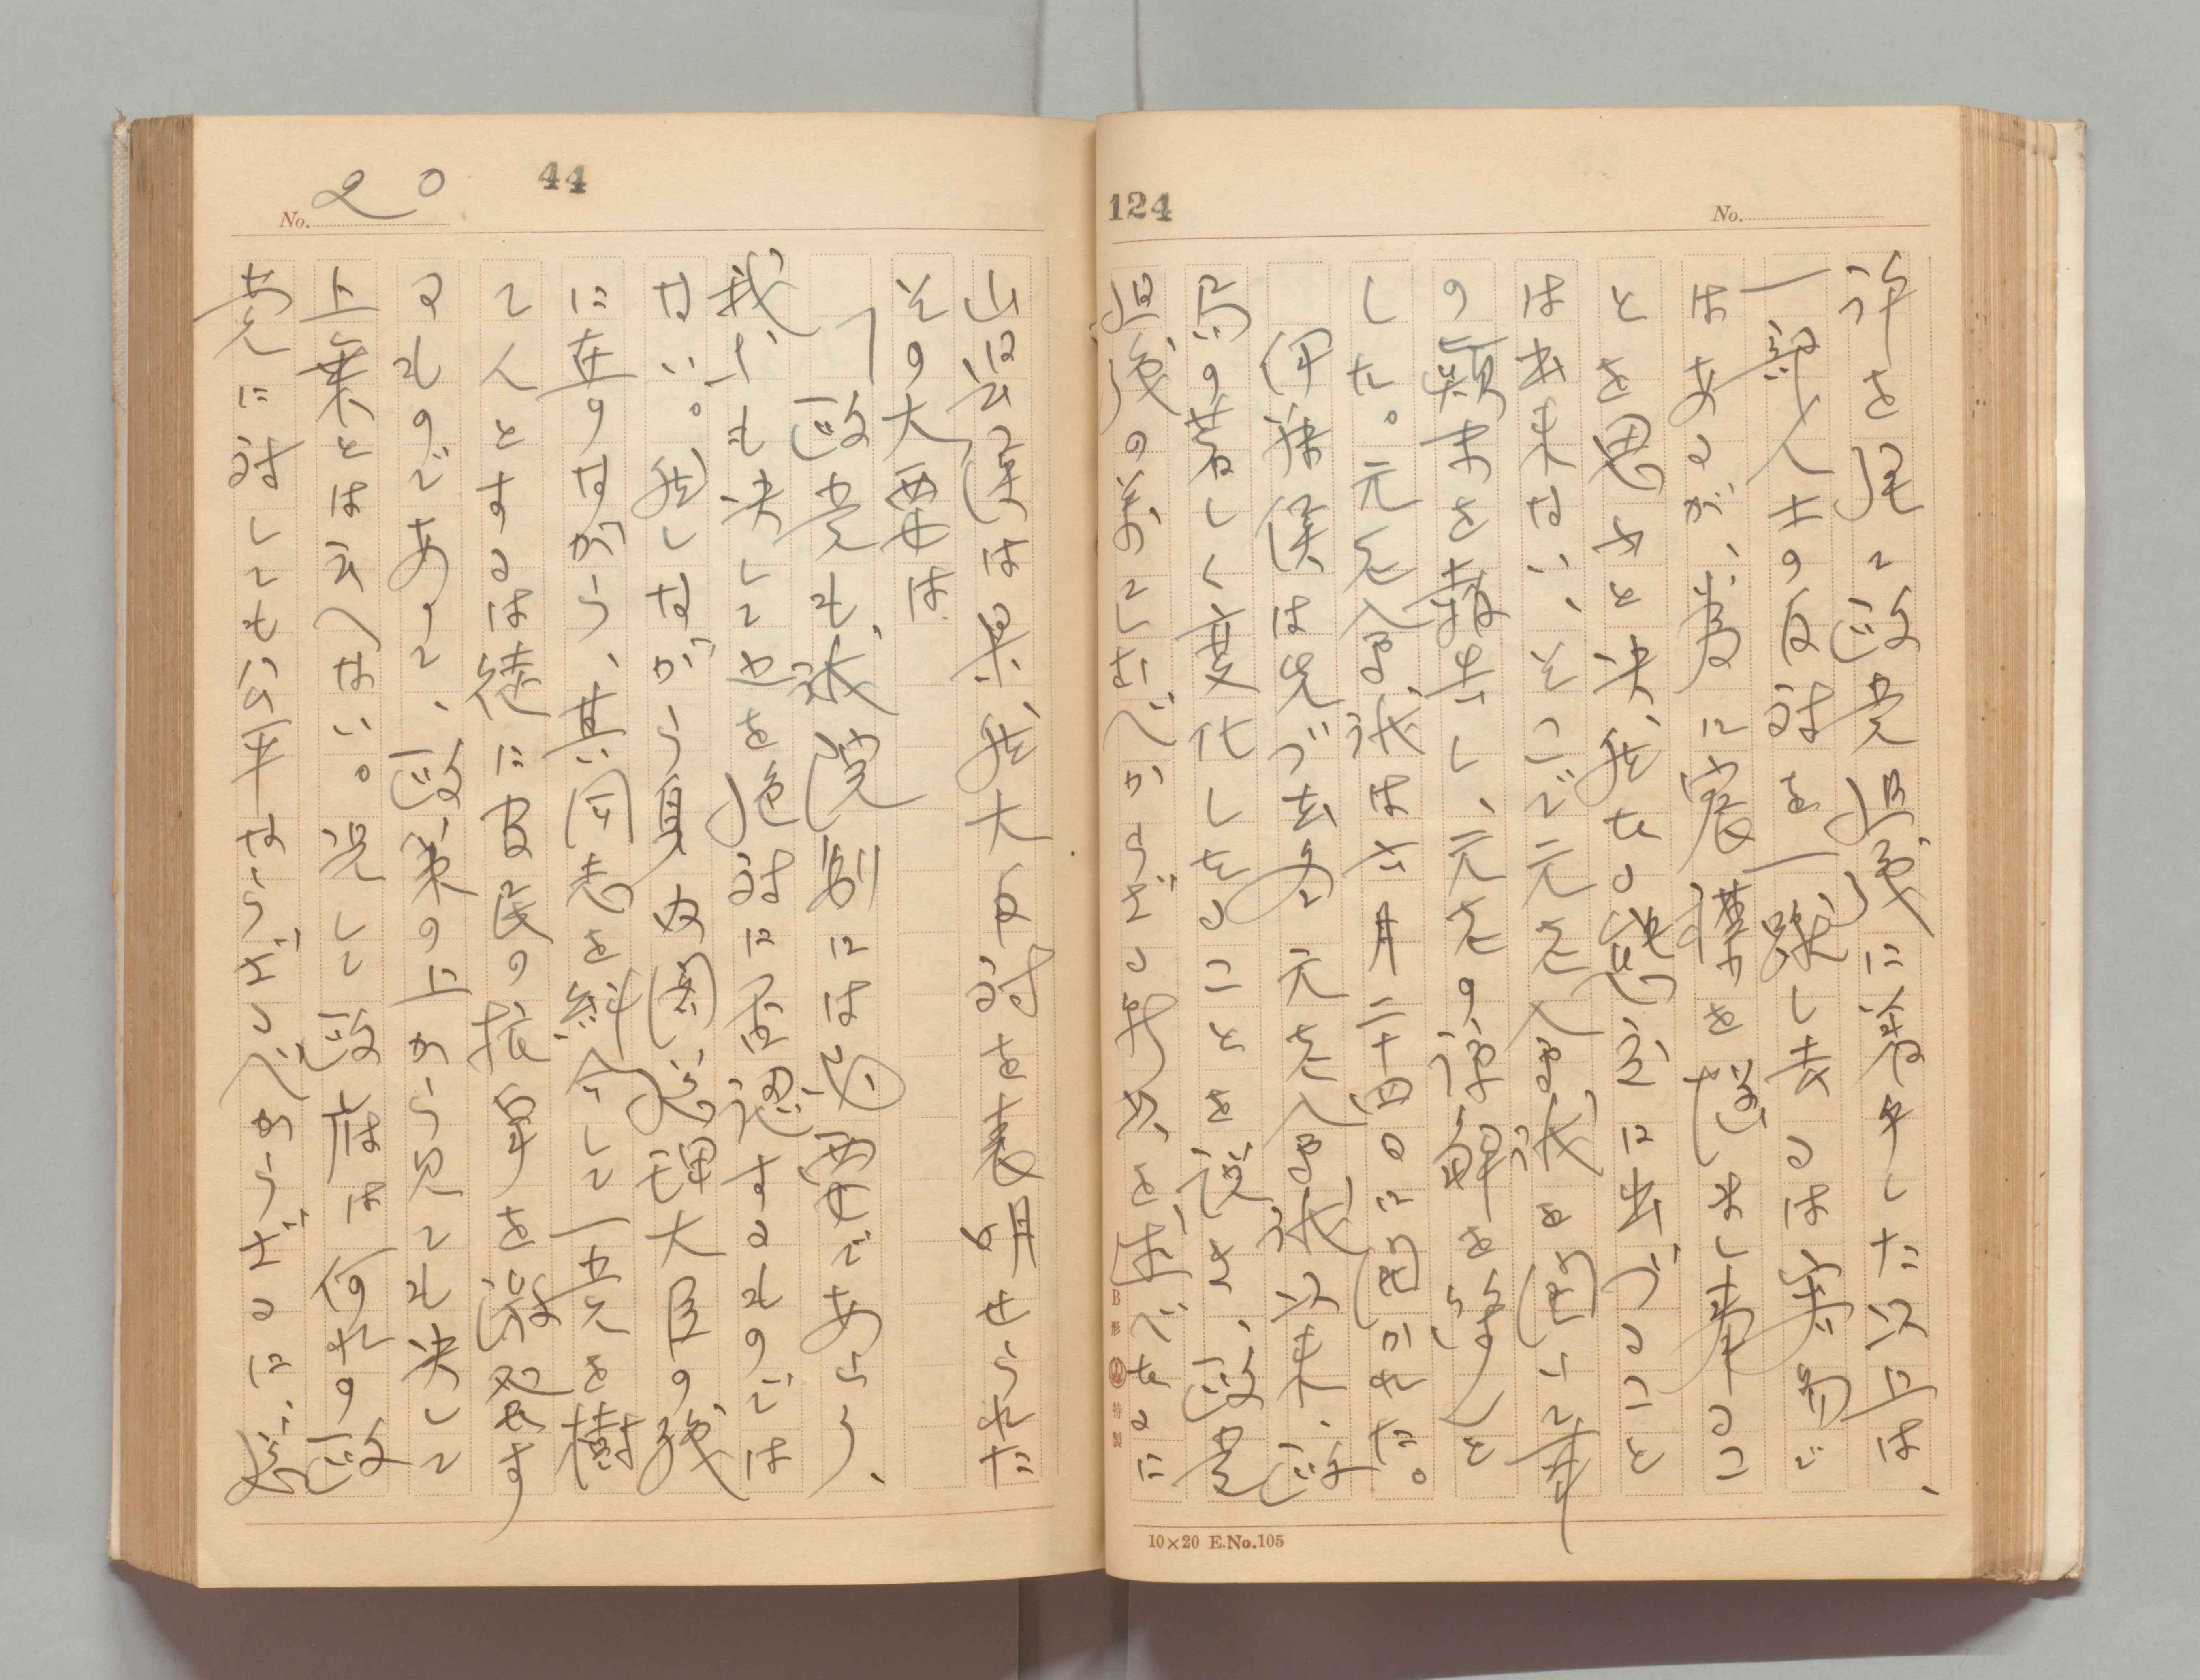 124
No.
許を得て政党組織に着手した以上は、
一部人士の反対を一蹴し去るは容易で
はあるが、為に宸襟を悩まし奉るこ
とを思ふと決然たる態度に出づること
は出来ない、そこで元老会議を開いて奉
の顛末を報告し、元老の諒解を得んと
した。元老会議は六月二十四日に開かれた。
伊藤侯は先づ去冬元老会議以来、政
局の著しく変化したることを説き、政党
組織の萬已むべからざる所以を述べたるに
B形 特製
10×20 E.No.105
44
No. 20
山県公爵は果然大反対を表明せられた
その大要は
「政党も、議院制には必要であらう、
我々も決して也を絶対に否認するものでは
ない。然しながら身内閣総理大臣の職
に在りながら、其同志を糾合して一党を樹
てんとするは徒に官民の抗争を激発す
るものであつて、政策の上から見ても決して
上乗とは云へない。況して政府は何れの政
党に対しても公平ならざるべからざるに、総